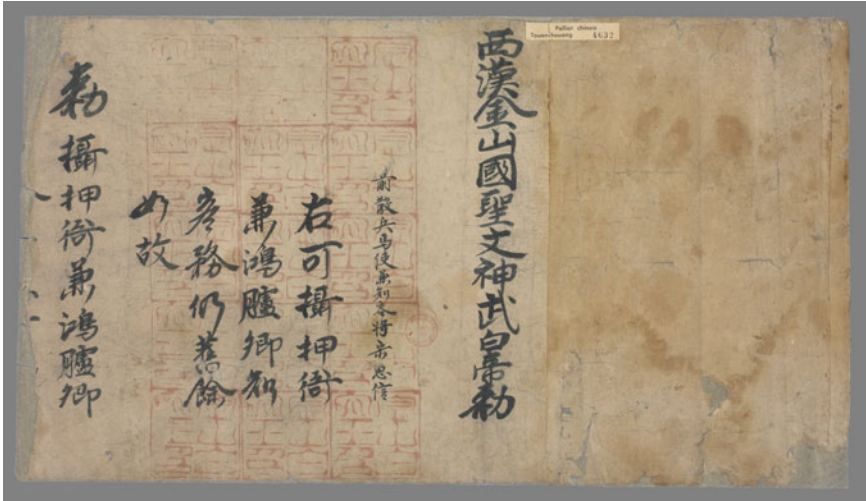 Pelliot chinois
Touen-houang 4632
西漢金山國聖文神武白帝勑
前散兵馬使兼知客將宋惠信
右可攝押衙
兼鴻臚卿知
客務仍舊餘
如故
勑攝押衙兼鴻臚卿